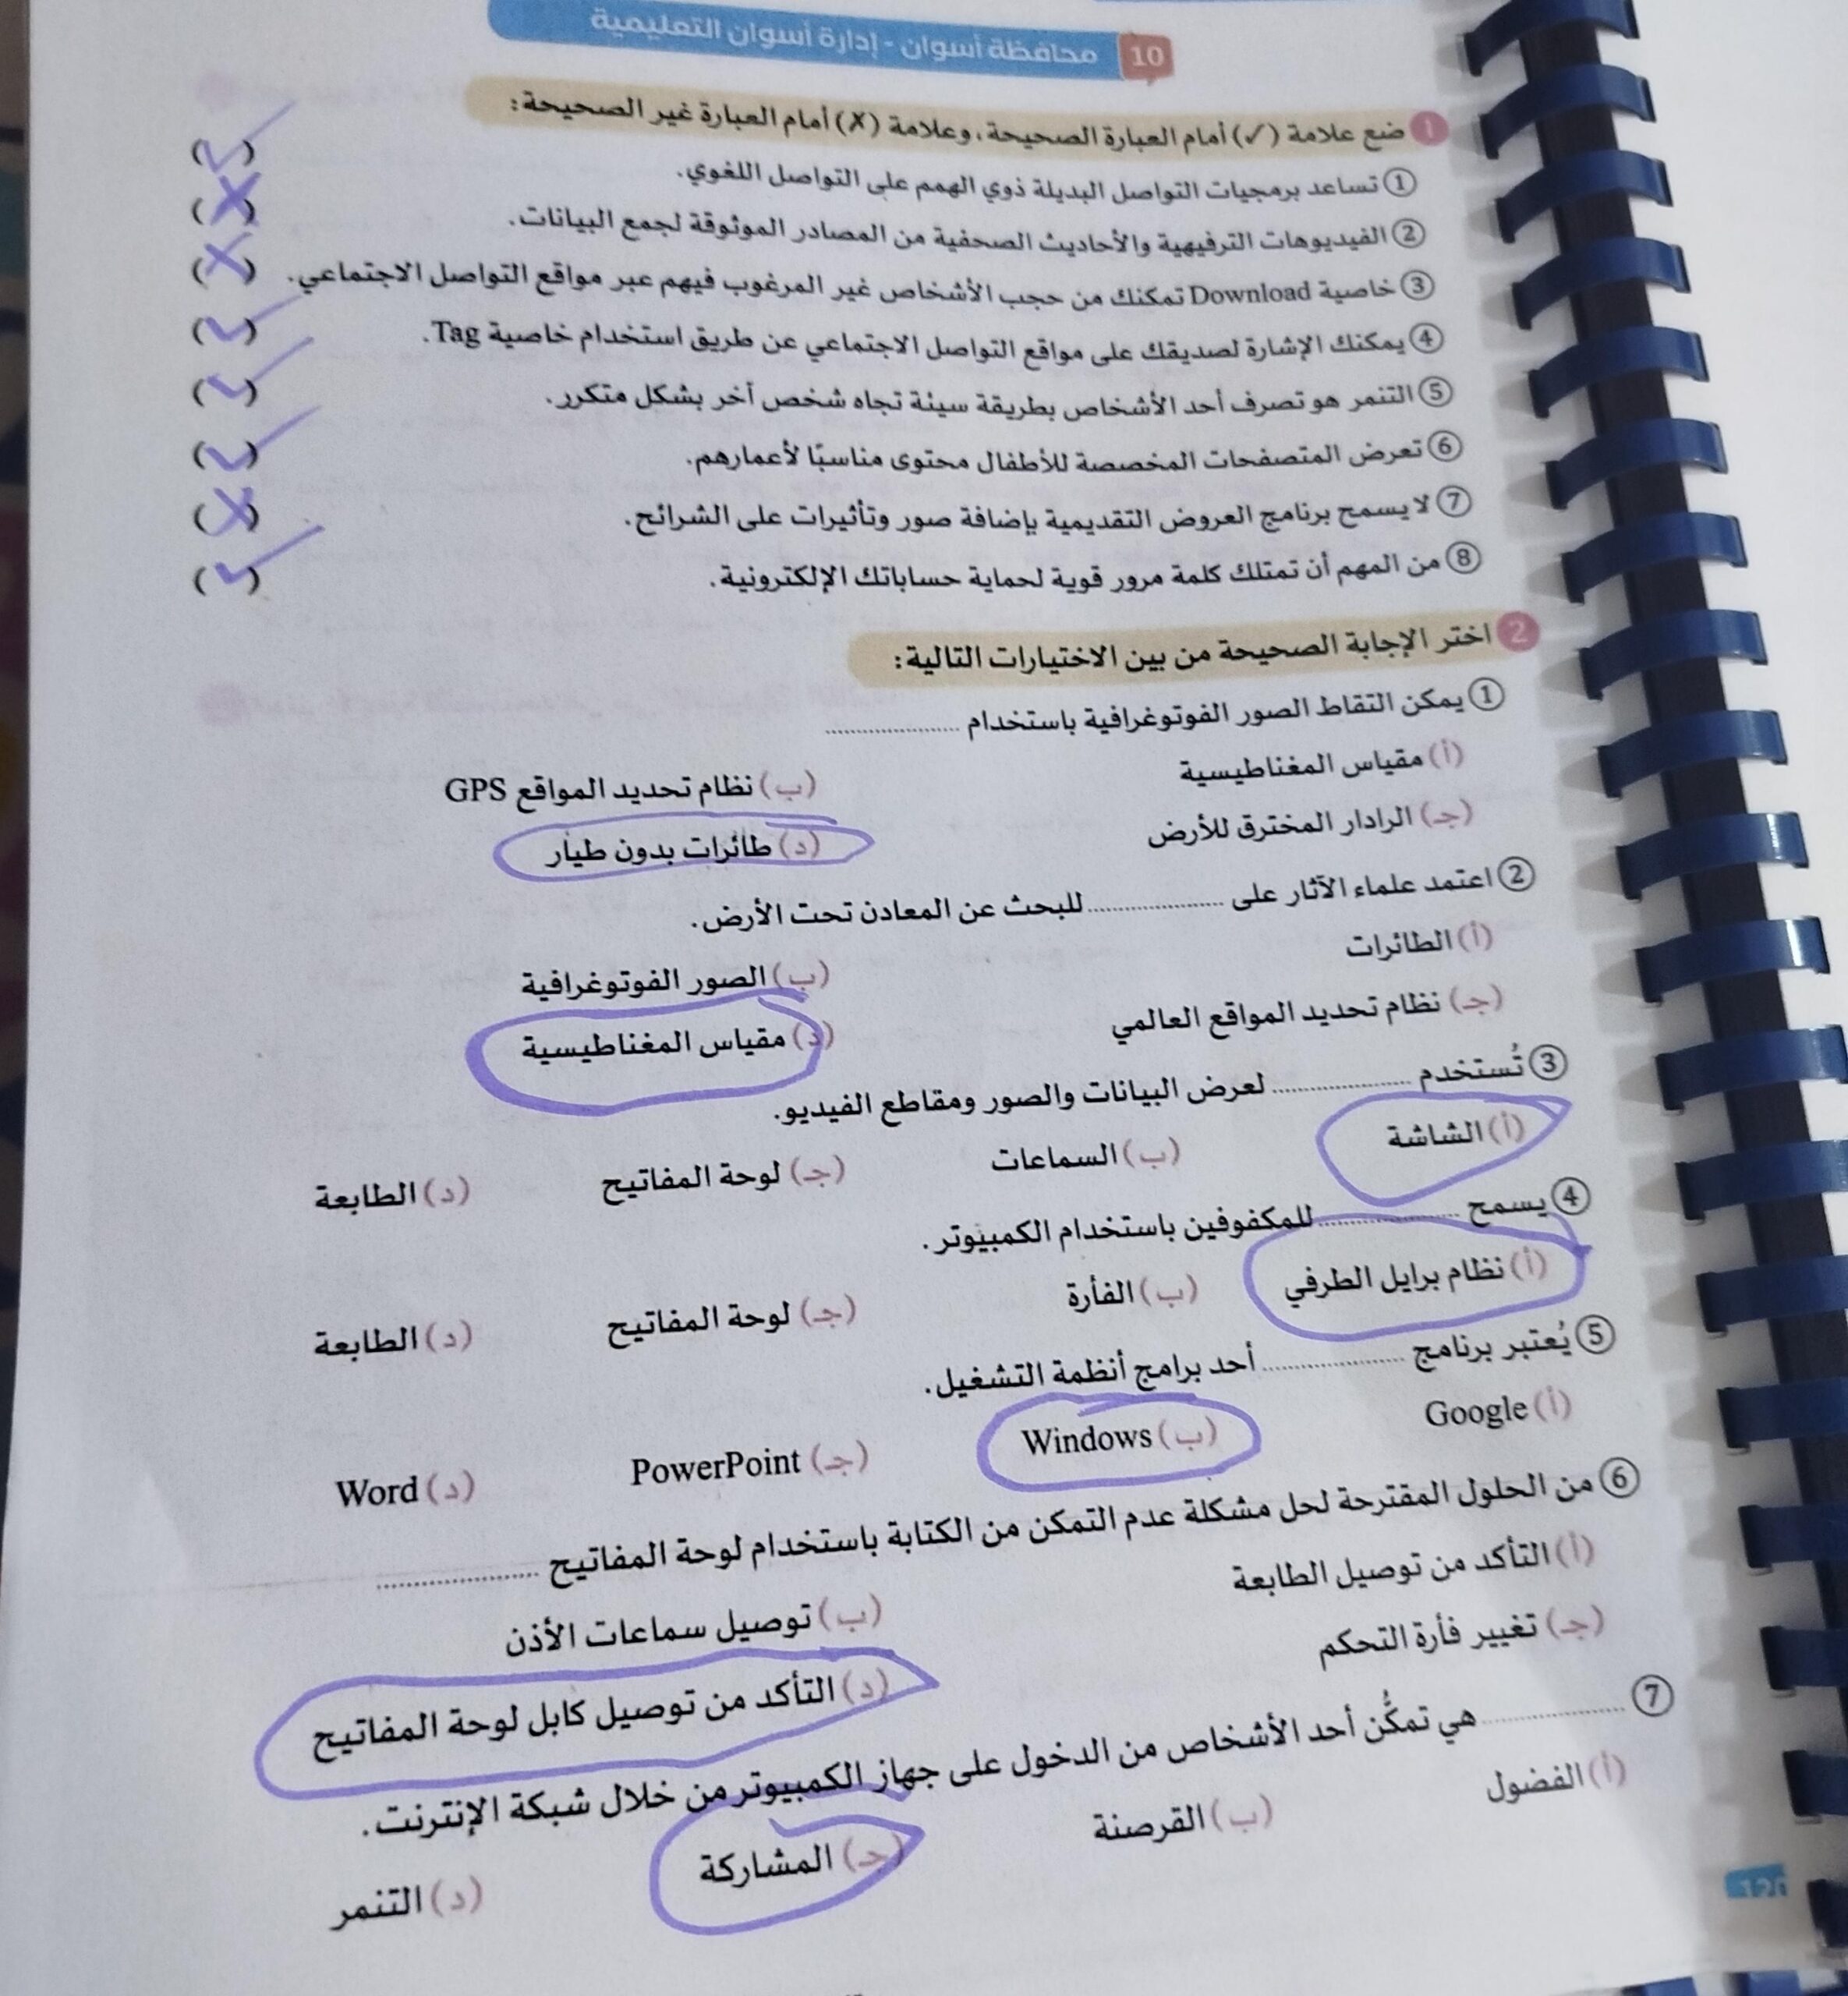 10 محافظة أسوان - إدارة أسوان التعليمية
1 ضع علامة (✓) أمام العبارة الصحيحة، وعلامة (✗) أمام العبارة غير الصحيحة:
① تساعد برمجيات التواصل البديلة ذوي الهمم على التواصل اللغوي. (✓)
② الفيديوهات الترفيهية والأحاديث الصحفية من المصادر الموثوقة لجمع البيانات. (✗)
③ خاصية Download تمكنك من حجب الأشخاص غير المرغوب فيهم عبر مواقع التواصل الاجتماعي. (✗)
④ يمكنك الإشارة لصديقك على مواقع التواصل الاجتماعي عن طريق استخدام خاصية Tag. (✓)
⑤ التنمر هو تصرف أحد الأشخاص بطريقة سيئة تجاه شخص آخر بشكل متكرر. (✓)
⑥ تعرض المتصفحات المخصصة للأطفال محتوى مناسبًا لأعمارهم. (✓)
⑦ لا يسمح برنامج العروض التقديمية بإضافة صور وتأثيرات على الشرائح. (✗)
⑧ من المهم أن تمتلك كلمة مرور قوية لحماية حساباتك الإلكترونية. (✓)
2 اختر الإجابة الصحيحة من بين الاختيارات التالية:
① يمكن التقاط الصور الفوتوغرافية باستخدام ....................
(أ) مقياس المغناطيسية (ب) نظام تحديد المواقع GPS
(جـ) الرادار المخترق للأرض (د) طائرات بدون طيار
② اعتمد علماء الآثار على .................... للبحث عن المعادن تحت الأرض.
(أ) الطائرات (ب) الصور الفوتوغرافية
(جـ) نظام تحديد المواقع العالمي (د) مقياس المغناطيسية
③ تُستخدم .................... لعرض البيانات والصور ومقاطع الفيديو.
(أ) الشاشة (ب) السماعات (جـ) لوحة المفاتيح (د) الطابعة
④ يسمح .................... للمكفوفين باستخدام الكمبيوتر.
(أ) نظام برايل الطرفي (ب) الفأرة (جـ) لوحة المفاتيح (د) الطابعة
⑤ يُعتبر برنامج .................... أحد برامج أنظمة التشغيل.
(أ) Google (ب) Windows (جـ) PowerPoint (د) Word
⑥ من الحلول المقترحة لحل مشكلة عدم التمكن من الكتابة باستخدام لوحة المفاتيح ....................
(أ) التأكد من توصيل الطابعة (ب) توصيل سماعات الأذن
(جـ) تغيير فأرة التحكم (د) التأكد من توصيل كابل لوحة المفاتيح
⑦ .................... هي تمكُّن أحد الأشخاص من الدخول على جهاز الكمبيوتر من خلال شبكة الإنترنت.
(أ) الفضول (ب) القرصنة (جـ) المشاركة (د) التنمر